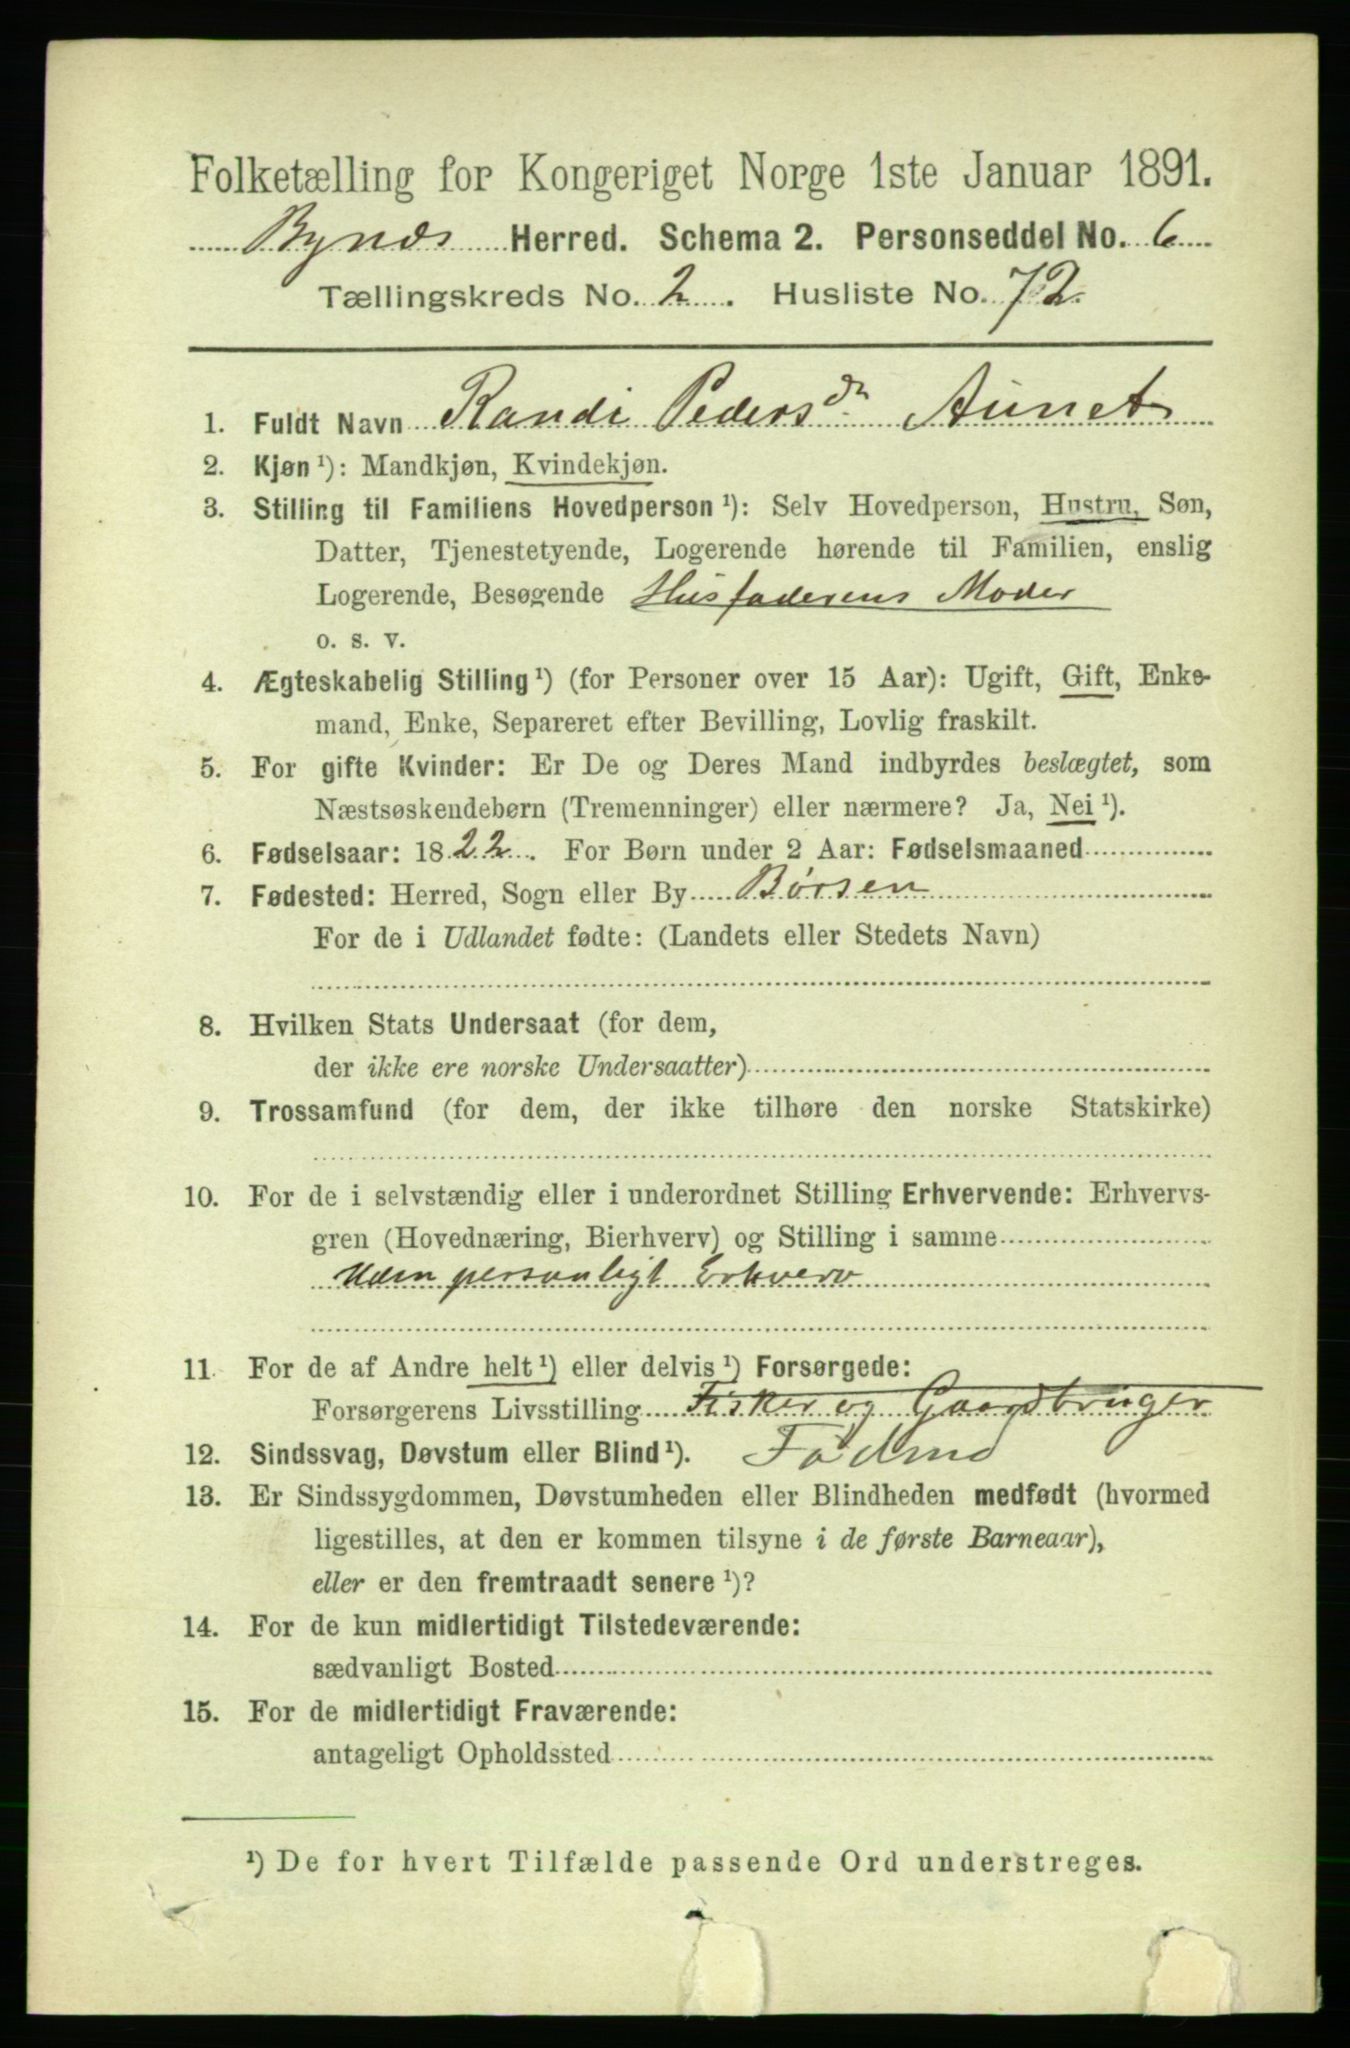 Folketælling for Kongeriget Norge 1ste Januar 1891.
Bynæs Herred. Schema 2. Personseddel No. 6
Tællingskreds No. 2. Husliste No. 72.
1. Fuldt Navn Randi Pedersdr Aunet
2. Kjøn ¹): Mandkjøn, Kvindekjøn.
3. Stilling til Familiens Hovedperson ¹): Selv Hovedperson, Hustru, Søn,
Datter, Tjenestetyende, Logerende hørende til Familien, enslig
Logerende, Besøgende Husfaderens Moder
o. s. v.
4. Ægteskabelig Stilling ¹) (for Personer over 15 Aar): Ugift, Gift, Enke-
mand, Enke, Separeret efter Bevilling, Lovlig fraskilt.
5. For gifte Kvinder: Er De og Deres Mand indbyrdes beslægtet, som
Næstsøskendebørn (Tremenninger) eller nærmere? Ja, Nei ¹).
6. Fødselsaar: 1822. For Børn under 2 Aar: Fødselsmaaned
7. Fødested: Herred, Sogn eller By Børsen
For de i Udlandet fødte: (Landets eller Stedets Navn)
8. Hvilken Stats Undersaat (for dem,
der ikke ere norske Undersaatter)
9. Trossamfund (for dem, der ikke tilhøre den norske Statskirke)
10. For de i selvstændig eller i underordnet Stilling Erhvervende: Erhvervs-
gren (Hovednæring, Bierhverv) og Stilling i samme
Uden personligt Erhverv
11. For de af Andre helt ¹) eller delvis ¹) Forsørgede:
Forsørgerens Livsstilling Fisker og Gaardbruger
12. Sindssvag, Døvstum eller Blind ¹).
13. Er Sindssygdommen, Døvstumheden eller Blindheden medfødt (hvormed
ligestilles, at den er kommen tilsyne i de første Barneaar),
eller er den fremtraadt senere ¹)?
14. For de kun midlertidigt Tilstedeværende:
sædvanligt Bosted
15. For de midlertidigt Fraværende:
antageligt Opholdssted
¹) De for hvert Tilfælde passende Ord understreges.